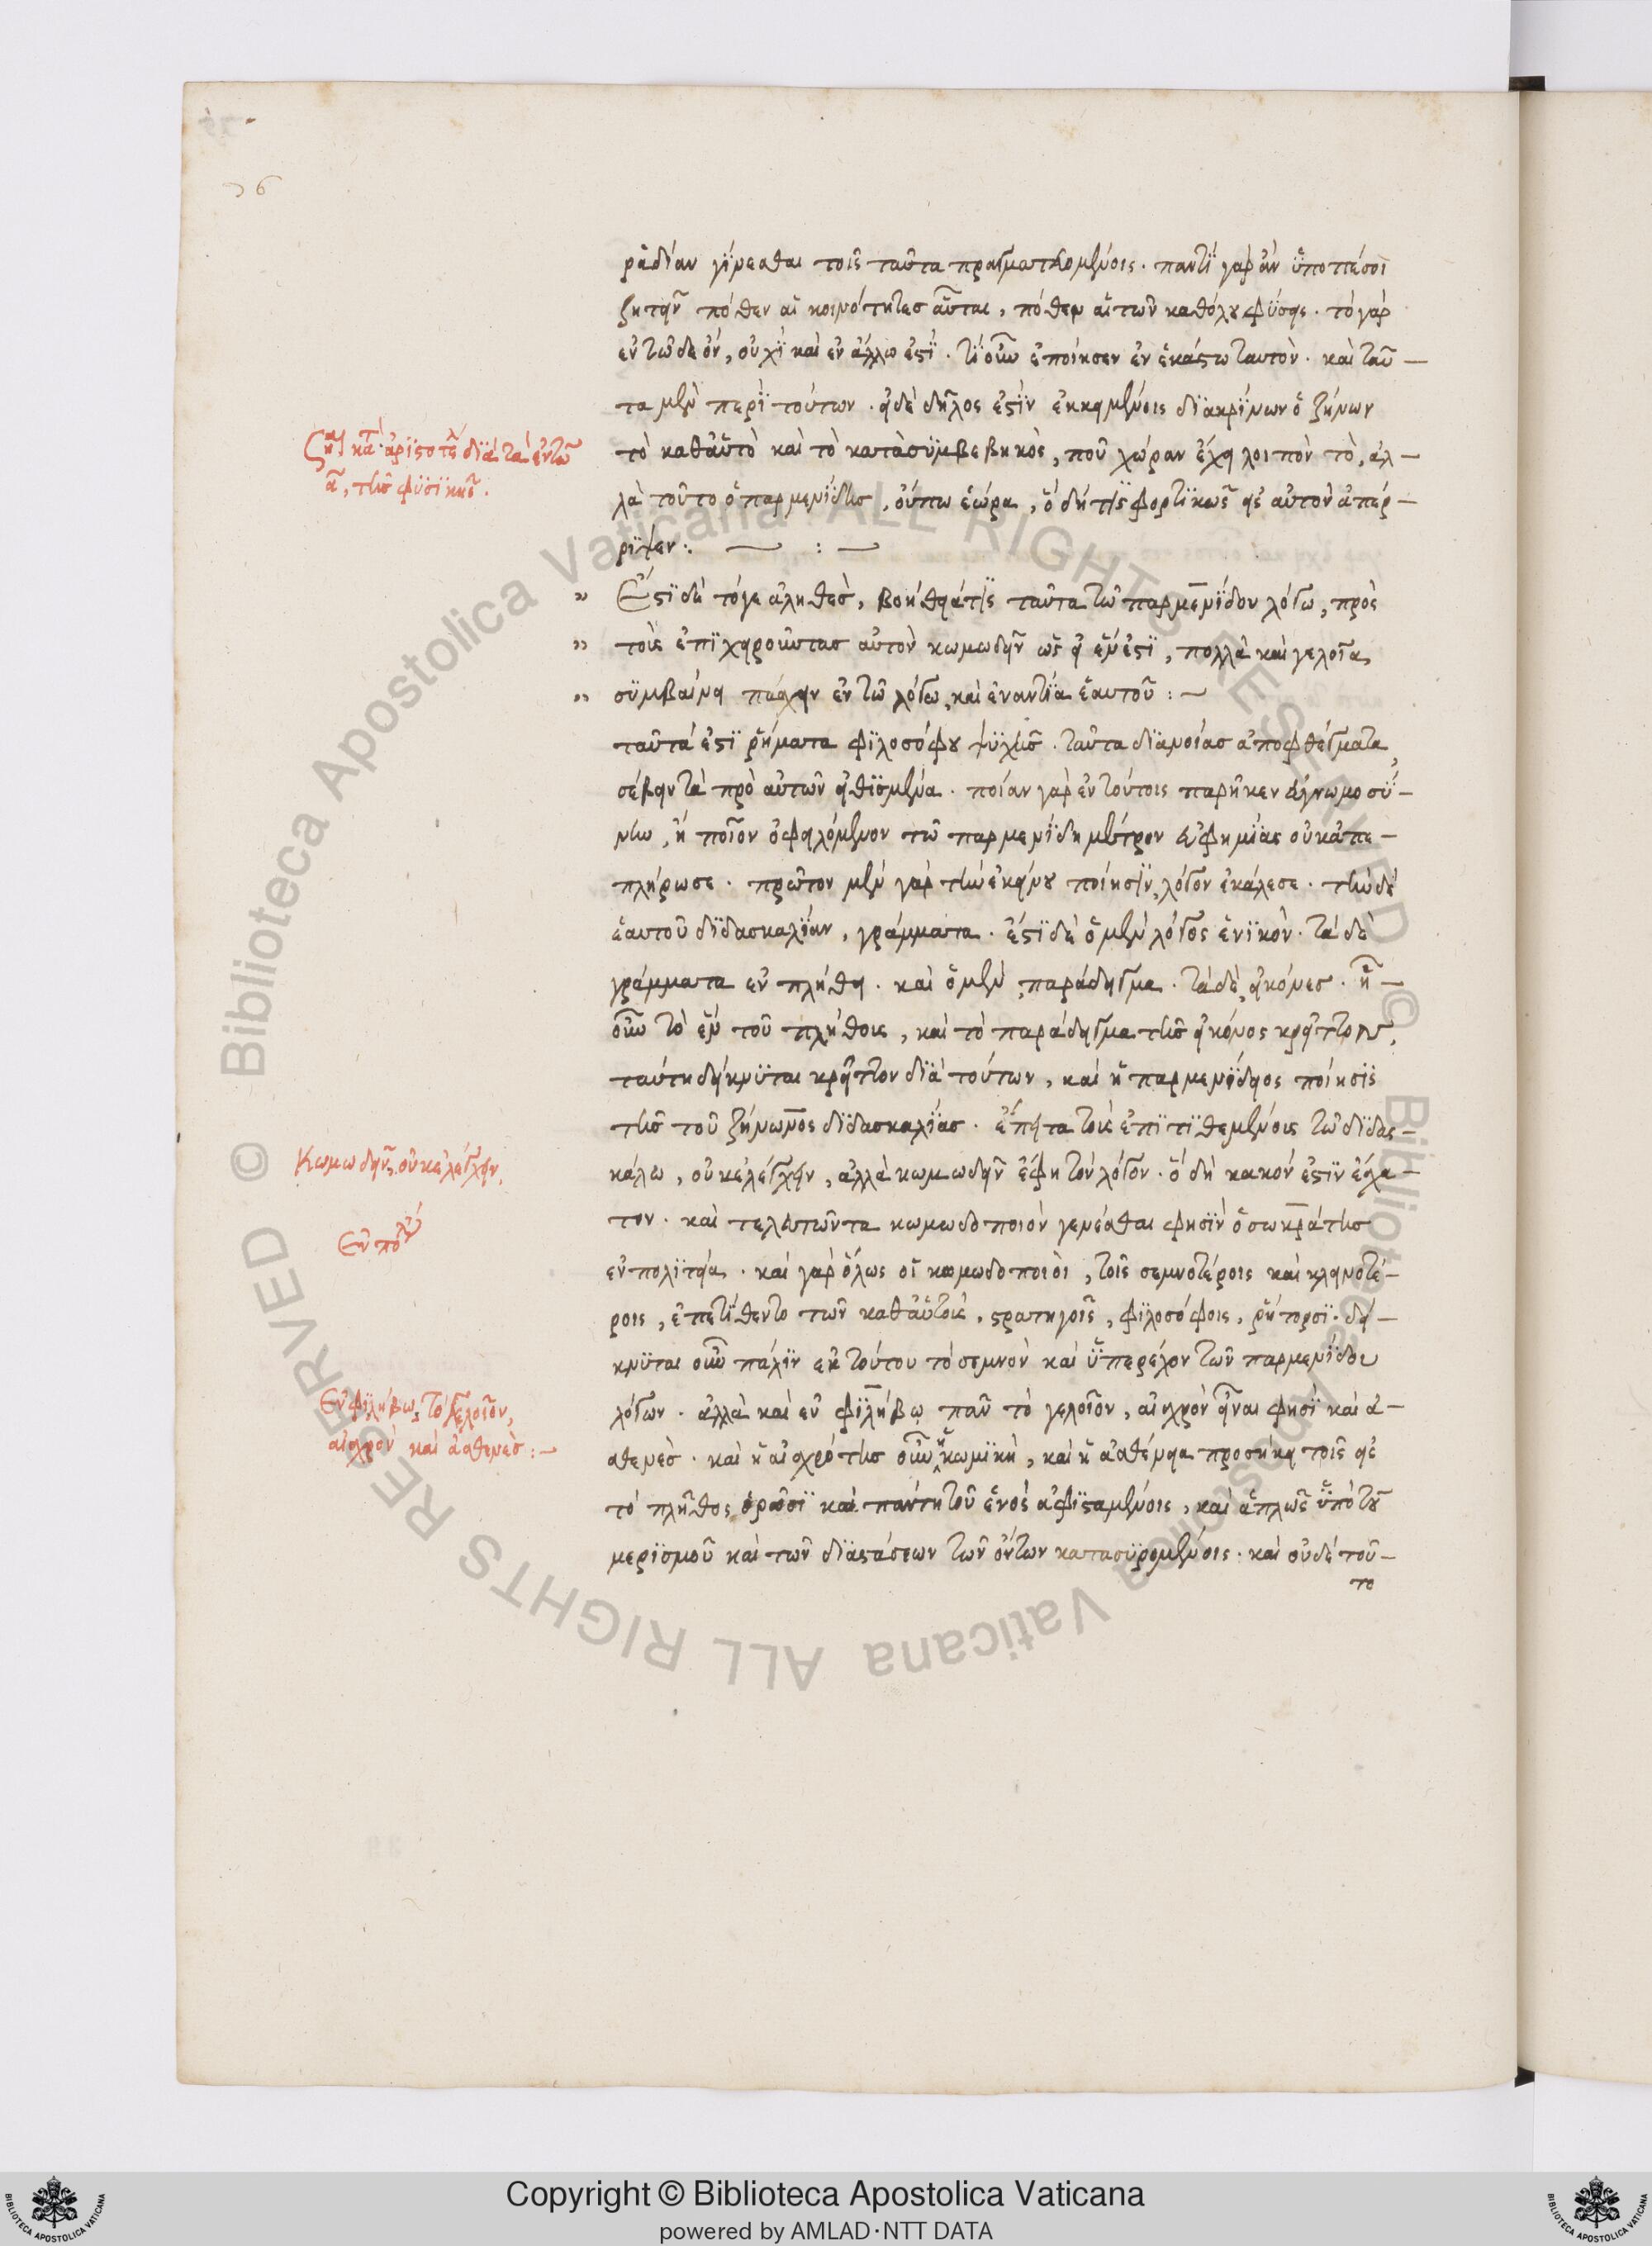 36
ῥᾳδίαν γίνεσθαι τοῖς ταῦτα πραγματευομένοις. παντὶ γὰρ ἂν ὑποπέσοι
ζητεῖν πόθεν αἱ κοινότητες αὗται, πόθεν αἱ τῶν καθόλου φύσεις. τὸ γὰρ
ἐν τῷδε ὄν, οὐχὶ καὶ ἐν ἄλλω ἐστί. τί οὖν ἐποίησεν ἐν ἑκάστω ταυτόν. καὶ ταῦ-
τα μὲν περὶ τούτων. εἰ δὲ δῆλος ἐστὶν ἐκκειμένοις διακρίνων ὁ ζήνων
τὸ καθαὑτὸ καὶ τὸ κατὰ συμβεβηκὸς, ποῦ χώραν ἔχει λοιπὸν τὸ, ἀλ-
λὰ τοῦτο ὁ παρμενίδης, οὔπω ἑώρα, ὃ δή τις φορτικῶς εἰς αὐτὸν ἀπέρ-
ριψεν:
Ἔστι δὲ τόγε ἀληθὲς, βοήθειά τις ταῦτα τῶ παρμενίδου λόγω, πρὸς
τοὺς ἐπιχειροῦντας αὐτὸν κωμωδεῖν ὡς εἰ ἕν ἐστι, πολλὰ καὶ γελοῖα
συμβαίνει πάσχειν ἐν τῶ λόγω, καὶ ἐναντία ἑαυτοῦ:
ταῦτά ἐστι ῥήματα φιλοσόφου ψυχῆς. ταῦτα διανοίας ἀποφθέγματα
σέβειν τὰ πρὸ αὐτῶν εἰθισμένα. ποίαν γὰρ ἐν τούτοις παρῆκεν εὐγνωμοσύ-
νην, ἢ ποῖον ὀφειλόμενον τῶ παρμενίδη μέτρον εὐφημίας οὐκ ἀπε-
πλήρωσε. πρῶτον μὲν γὰρ τὴν ἐκείνου ποίησιν, λόγον ἐκάλεσε. τὴν δὲ
ἑαυτοῦ διδασκαλίαν, γράμματα. ἔστι δὲ ὁ μὲν λόγος ἑνικόν. τὰ δὲ
γράμματα ἐν πλήθει. καὶ ὁ μὲν παράδειγμα. τὰ δὲ εἰκόνες. ἧ
οὖν τὸ ἓν τοῦ πλήθους, καὶ τὸ παράδειγμα τῆς εἰκόνος κρεῖττον,
ταύτη δείκνυται κρεῖττον διὰ τούτων, καὶ ἡ παρμενίδειος ποίησις
τῆς τοῦ ζήνωνος διδασκαλίας. ἔπειτα τοὺς ἐπιτιθεμένους τῶ διδας-
κάλω, οὐκ ἐλέγχειν, ἀλλὰ κωμωδεῖν ἔφη τὸν λόγον. ὃ δὴ κακόν ἐστιν ἔσχα-
τον. καὶ τελευτῶντα κωμωδοποιὸν γενέσθαι φησὶν ὁ σωκράτης
ἐν πολιτεία. καὶ γὰρ ὅλως οἱ κωμωδοποιοὶ, τοῖς σεμνοτέροις καὶ κλεινοτέ-
ροις, ἐπετίθεντο τῶν καθ αὑτοὺς, στρατηγοῖς, φιλοσόφοις, ῥήτορσι. δεί-
κνυται οὖν πάλιν ἐκ τούτου τὸ σεμνὸν καὶ ὑπερέχον τῶν παρμενίδου
λόγων. ἀλλὰ καὶ ἐν φιλήβω πᾶν τὸ γελοῖον, αἰσχρὸν εἶναι φησὶ καὶ ἀ-
σθενές. καὶ ἡ αἰσχρότης οὖν ἡ κωμικὴ, καὶ ἡ ἀσθένεια προσήκει τοῖς εἰς
τὸ πλῆθος ὁρῶσι καὶ πάντη τοῦ ἑνὸς ἀφισταμένοις, καὶ ἁπλῶς ὑπὸ τοῦ
μερισμοῦ καὶ τῶν διαστάσεων τῶν ὄντων κατασυρομένοις. καὶ οὐδὲ τοῦ-
το
Κωμωδεῖν, οὐκ ἐλέγχειν,
Ἐν πολι
Ἐν φιλήβω, τὸ γελοῖον,
αἰσχρὸν καὶ ἀσθενὲς:
Copyright © Biblioteca Apostolica Vaticana
powered by AMLAD·NTT DATA
© Biblioteca Apostolica Vaticana ALL RIGHTS RESERVED
© Biblioteca Apostolica Vaticana ALL RIGHTS RESERVED
BIBLIOTECA APOSTOLICA VATICANA
BIBLIOTECA APOSTOLICA VATICANA